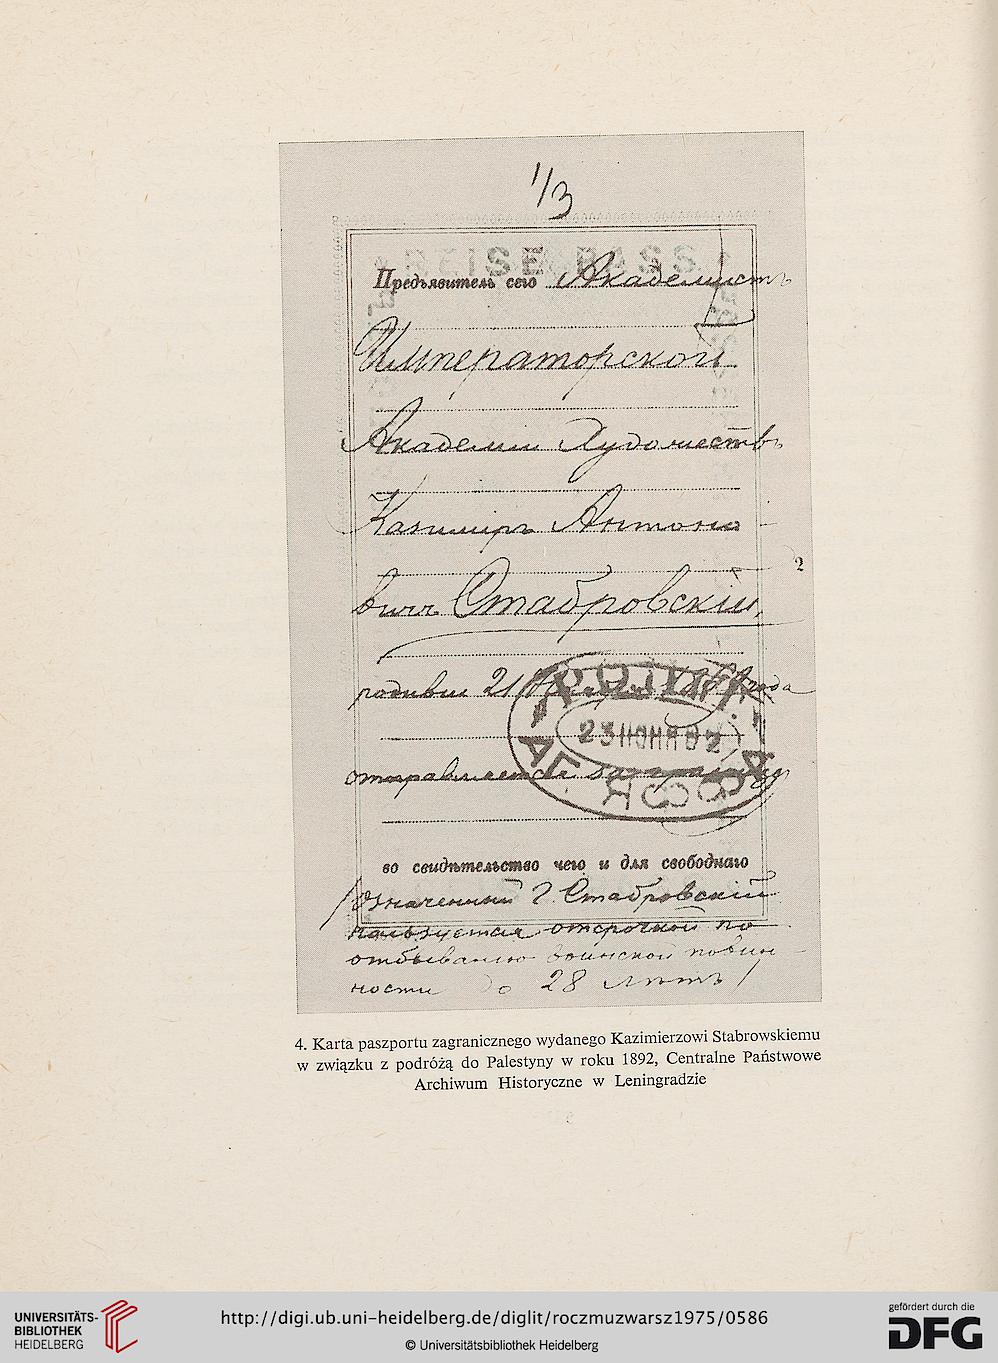 1/3
REISE PASS
Предъявитель сего Академистъ
Императорской
Академіи Художествъ
Казиміръ Антоно
вичъ Стабровскій,
2
родивш 21 года
23 ІЮНЯ 92
отправляется за границу
во свидѣтельство чего и для свободнаго
/означенный г. Стабровскій
пользуется отсрочкой по
отбыванию воинской повин
ности до 28 лѣтъ/
4. Karta paszportu zagranicznego wydanego Kazimierzowi Stabrowskiemu
w związku z podróżą do Palestyny w roku 1892, Centralne Państwowe
Archiwum Historyczne w Leningradzie
UNIVERSITÄTS-
BIBLIOTHEK
HEIDELBERG
http://digi.ub.uni-heidelberg.de/diglit/roczmuzwarsz1975/0586
© Universitätsbibliothek Heidelberg
gefördert durch die
DFG